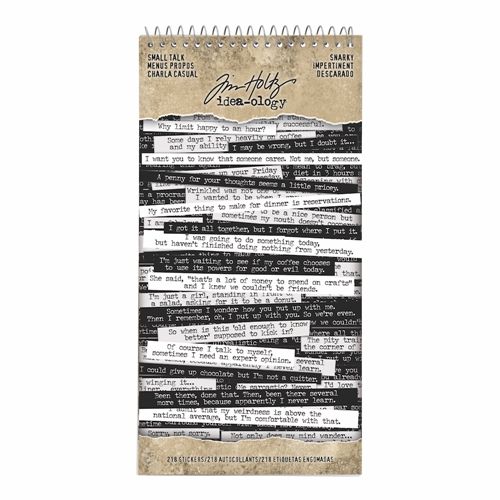 SMALL TALK
MENUS PROPOS
CHARLA CASUAL
SNARKY
IMPERTINENT
DESCARADO
Tim Holtz
idea-ology
successful.
Why limit happy to an hour?
Some days I rely heavily on coffee
and my ability
I may be wrong, but I doubt it...
I want you to know that someone cares. Not me, but someone.
up your Friday
my diet in 3 hours
A penny for your thoughts seems a little pricey.
Wrinkled was not one of
I wanted to be when I
My favorite thing to make for dinner is reservations.
to be a nice person but
sometimes my mouth doesn't
I got it all together, but I forgot where I put it.
I was going to do something today,
but haven't finished doing nothing from yesterday.
I'm just waiting to see if my coffee chooses
to use its powers for good or evil today.
She said, "that's a lot of money to spend on crafts"
and I knew we couldn't be friends.
I'm just a girl, standing in front of
a salad, asking for it to be a donut.
Sometimes I wonder how you put up with me.
Then I remember, oh, I put up with you. So we're even.
So when is this "old enough to know
better" supposed to kick in?
The pity train
the corner of
Of course I talk to myself,
sometimes I need an expert opinion.
I could give up chocolate but I'm not a quitter.
winging it...
Me sarcastic? Never.
I'd love
Been there, done that. Then, been there several
more times, because apparently I never learn.
I admit that my weirdness is above the
national average, but I'm comfortable with that.
Sorry, not sorry.
Not only does my mind wander...
218 STICKERS/218 AUTOCOLLANTS/218 ETIQUETAS ENGOMADAS